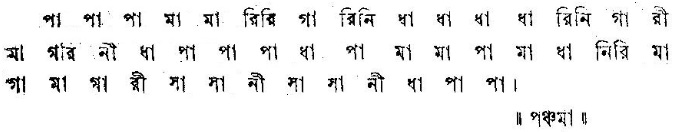 পা পা পা মা মা রিরি গা রিনি ধা ধা ধা ধা রিনি গা রী
মা গরি নী ধা পা পা পা ধা পা মা মা পা মা ধা নিরি মা
গা মা গা রী সা সা নী সা সা নী ধা পা পা।
॥ পঞ্চমা ॥